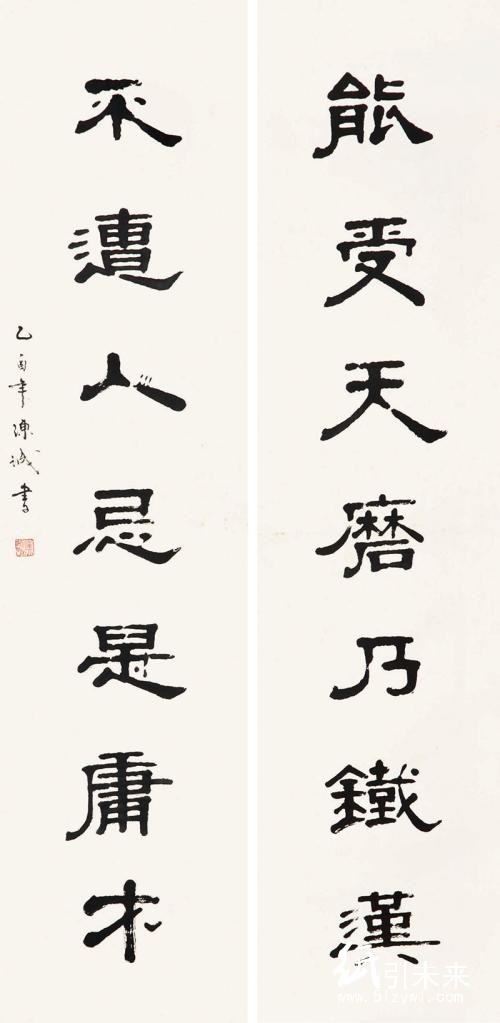 能受天磨乃鐵漢
不遭人忌是庸才
乙酉年陳誠書
引未来
www.bizywl.com